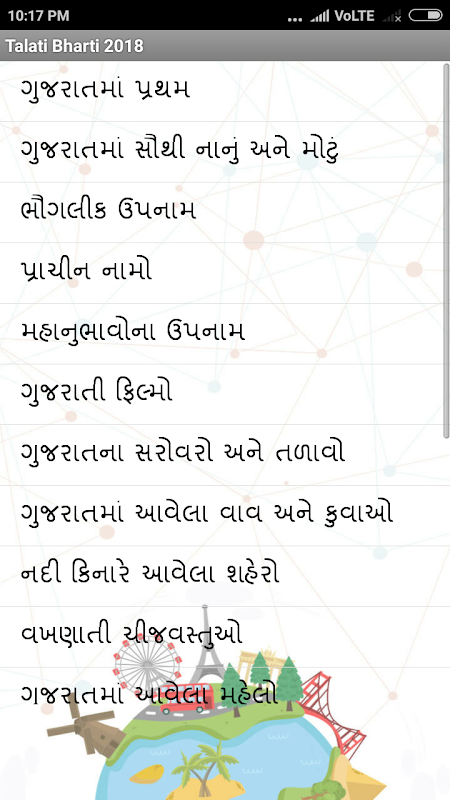 10:17 PM ... VoLTE
Talati Bharti 2018
ગુજરાતમાં પ્રથમ
ગુજરાતમાં સૌથી નાનું અને મોટું
ભૌગલીક ઉપનામ
પ્રાચીન નામો
મહાનુભાવોના ઉપનામ
ગુજરાતી ફિલ્મો
ગુજરાતના સરોવરો અને તળાવો
ગુજરાતમાં આવેલા વાવ અને કુવાઓ
નદી કિનારે આવેલા શહેરો
વખણાતી ચીજવસ્તુઓ
ગજરાતમાં આવેલા મહેલો